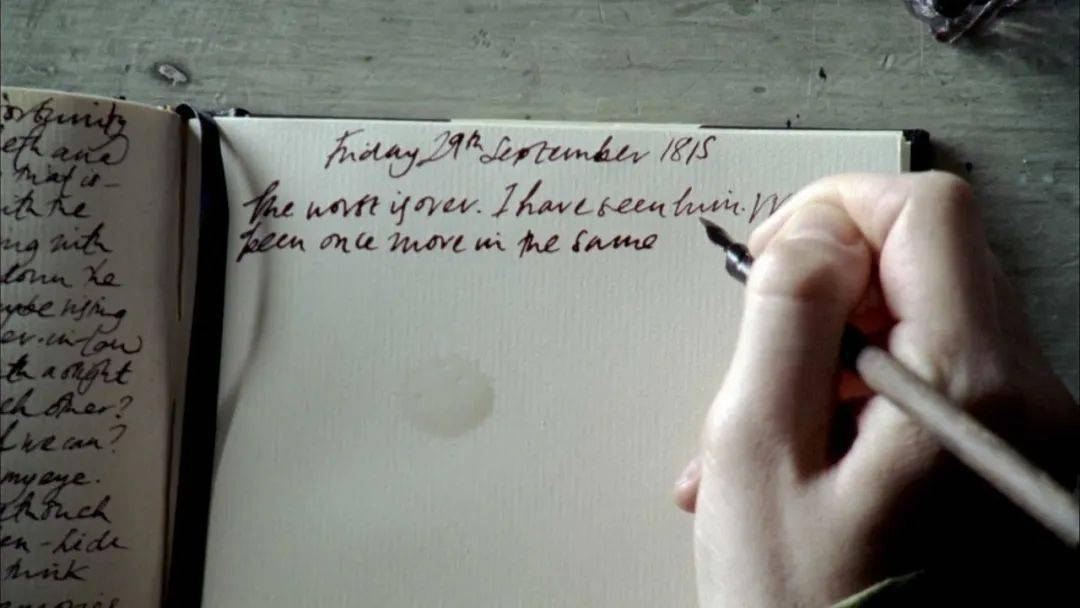 ortunity
eth and
that is -
with the
ng with
down the
maybe rising
er-in-law
th a slight
ch other?
if we can?
my eye.
though
en - hide
think
Friday 29th September 1815
The worst is over. I have seen him. W
been once more in the same